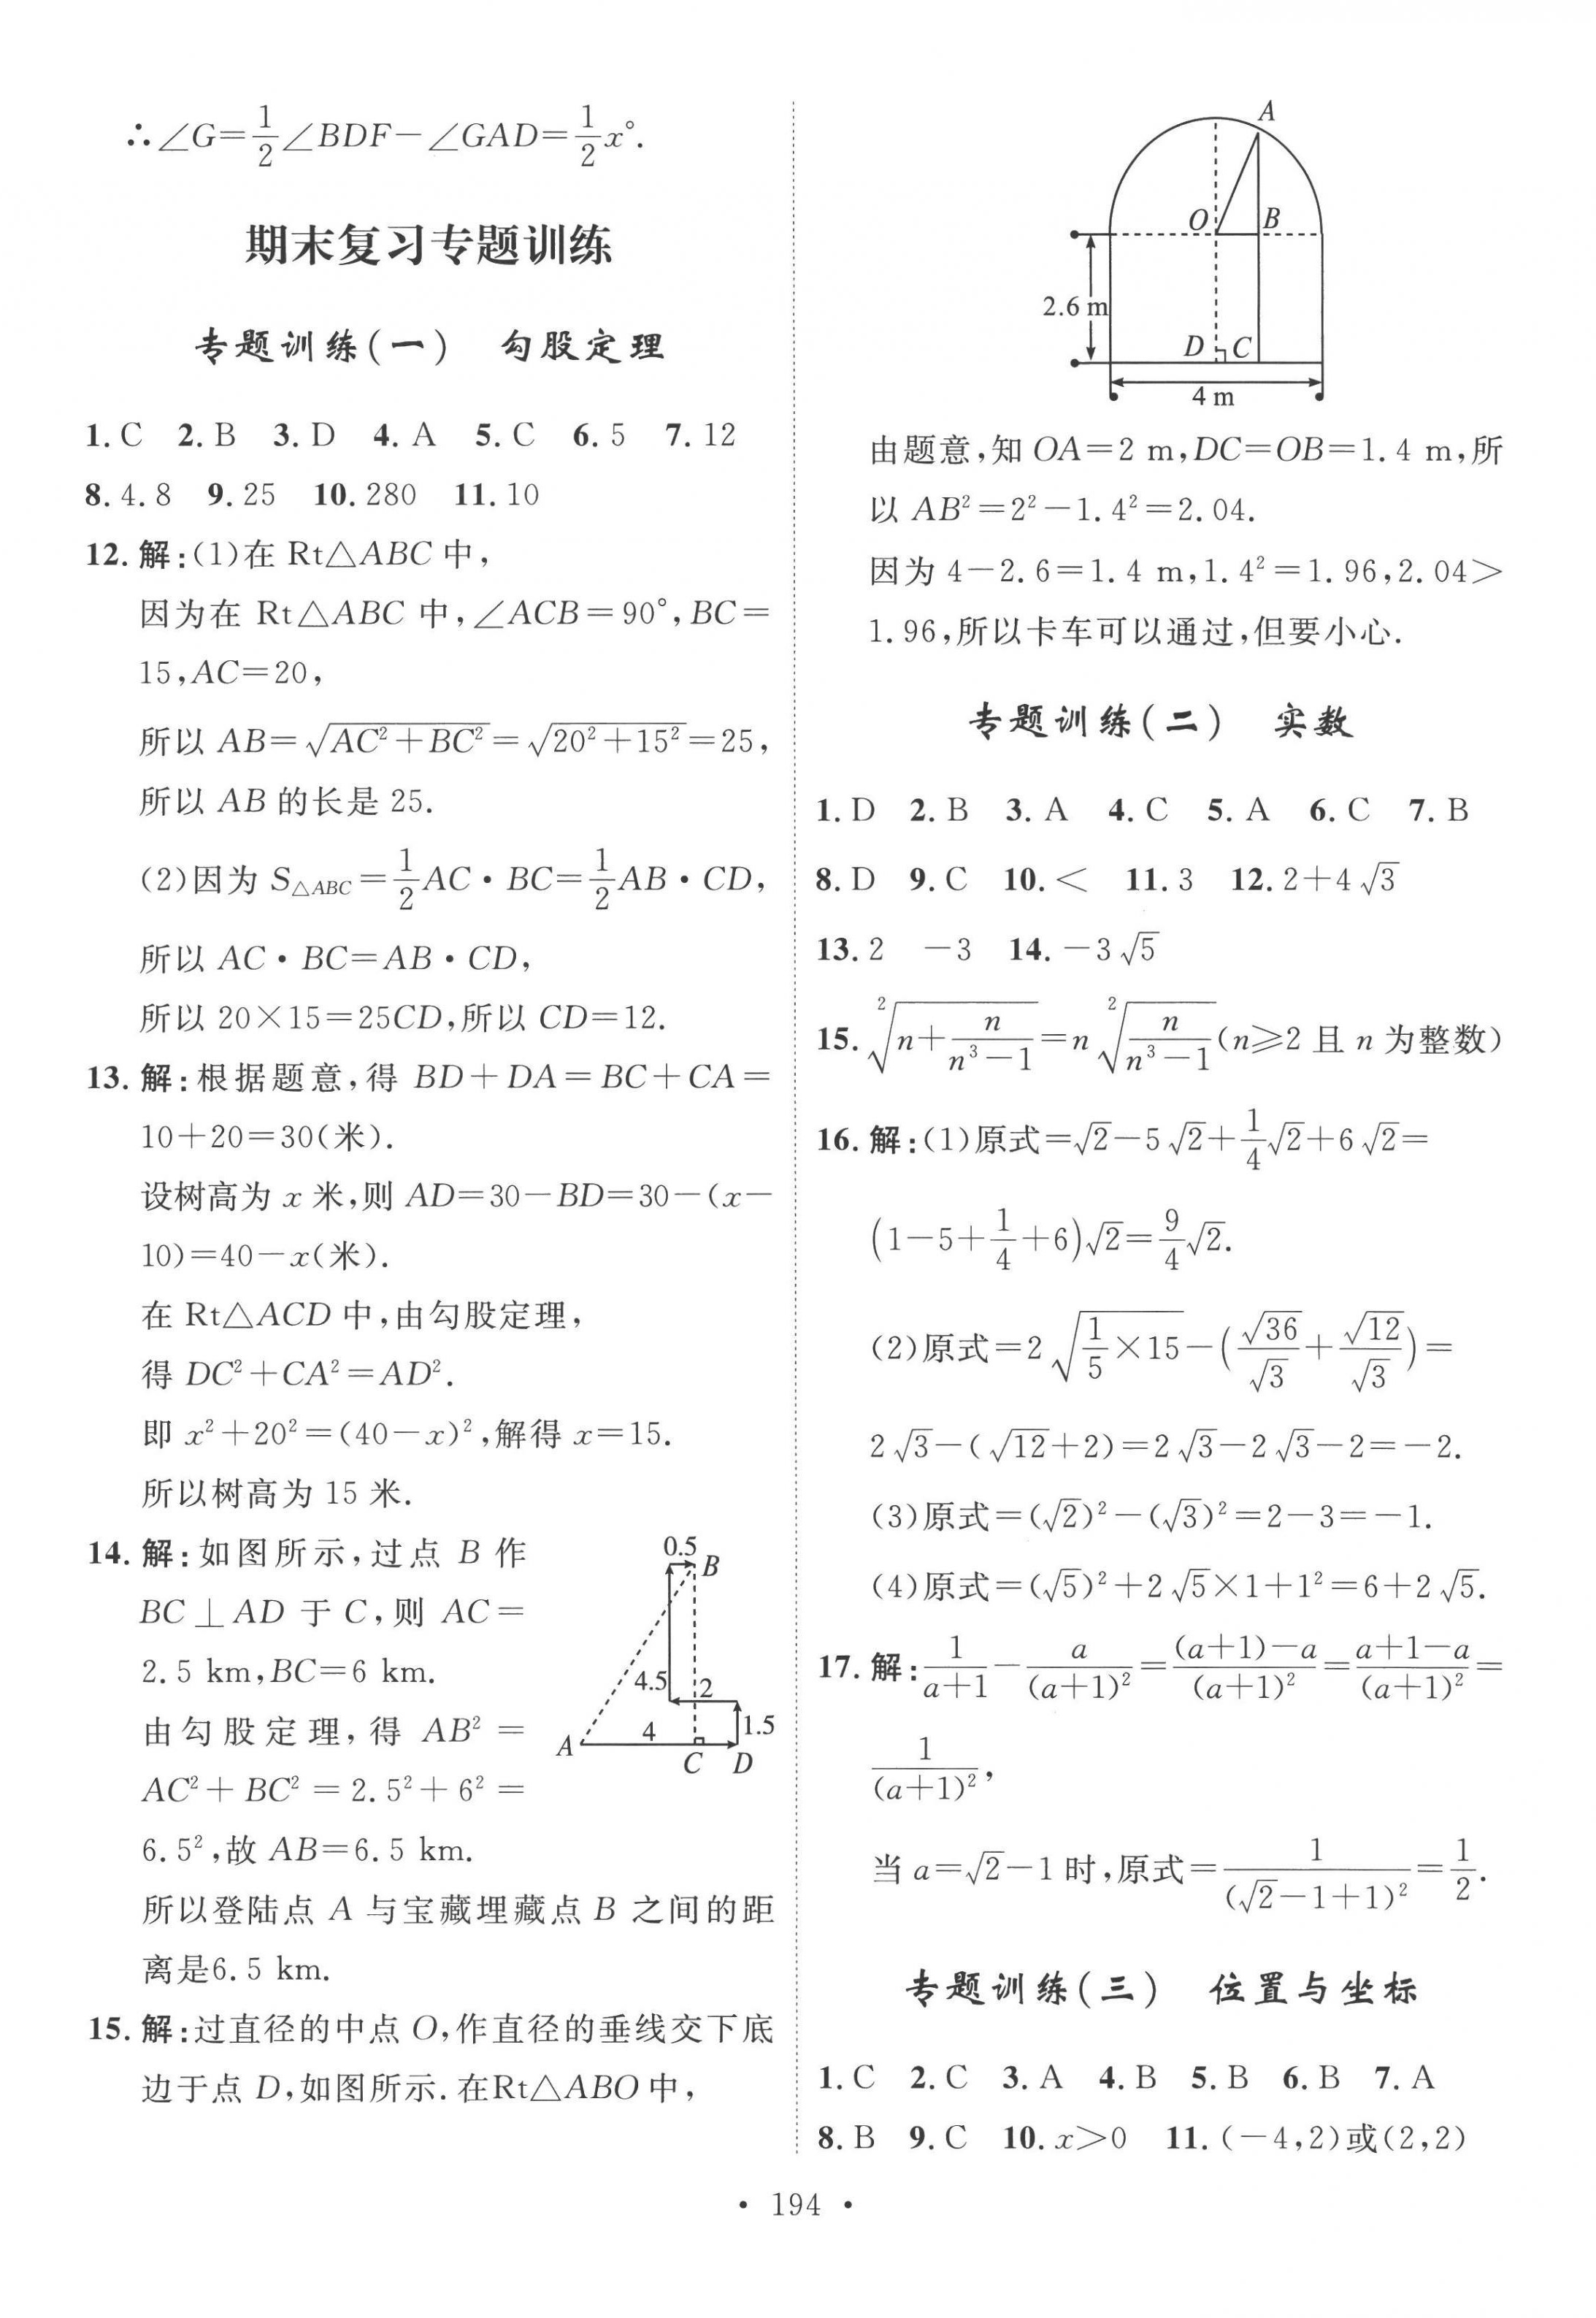 ∴∠G=1/2∠BDF-∠GAD=1/2x°.
期末复习专题训练
专题训练(一) 勾股定理
1. C 2. B 3. D 4. A 5. C 6. 5 7. 12
8. 4.8 9. 25 10. 280 11. 10
12. 解:(1)在 Rt△ABC 中,
因为在 Rt△ABC 中,∠ACB=90°,BC=
15,AC=20,
所以 AB=√(AC²+BC²)=√(20²+15²)=25,
所以 AB 的长是 25.
(2)因为 S△ABC=1/2AC·BC=1/2AB·CD,
所以 AC·BC=AB·CD,
所以 20×15=25CD,所以 CD=12.
13. 解:根据题意,得 BD+DA=BC+CA=
10+20=30(米).
设树高为 x 米,则 AD=30-BD=30-(x-
10)=40-x(米).
在 Rt△ACD 中,由勾股定理,
得 DC²+CA²=AD².
即 x²+20²=(40-x)²,解得 x=15.
所以树高为 15 米.
14. 解:如图所示,过点 B 作
BC⊥AD 于 C,则 AC=
2.5 km,BC=6 km.
由勾股定理,得 AB²=
AC²+BC²=2.5²+6²=
6.5²,故 AB=6.5 km.
0.5
B
4.5
2
1.5
A
4
C
D
所以登陆点 A 与宝藏埋藏点 B 之间的距
离是6.5 km.
15. 解:过直径的中点 O,作直径的垂线交下底
边于点 D,如图所示.在Rt△ABO中,
A
O
B
2.6 m
D
C
4 m
由题意,知 OA=2 m,DC=OB=1.4 m,所
以 AB²=2²-1.4²=2.04.
因为 4-2.6=1.4 m,1.4²=1.96,2.04>
1.96,所以卡车可以通过,但要小心.
专题训练(二) 实数
1. D 2. B 3. A 4. C 5. A 6. C 7. B
8. D 9. C 10. < 11. 3 12. 2+4√3
13. 2 -3 14. -3√5
15. ²√(n+n/(n³-1))=n ²√(n/(n³-1))(n≥2 且 n 为整数)
16. 解:(1)原式=√2-5√2+1/4√2+6√2=
(1-5+1/4+6)√2=9/4√2.
(2)原式=2√(1/5×15)-(√36/√3+√12/√3)=
2√3-(√12+2)=2√3-2√3-2=-2.
(3)原式=(√2)²-(√3)²=2-3=-1.
(4)原式=(√5)²+2√5×1+1²=6+2√5.
17. 解:1/(a+1)-a/(a+1)²=((a+1)-a)/(a+1)²=(a+1-a)/(a+1)²=
1/(a+1)²,
当 a=√2-1 时,原式=1/(√2-1+1)²=1/2.
专题训练(三) 位置与坐标
1. C 2. C 3. A 4. B 5. B 6. B 7. A
8. B 9. C 10. x>0 11. (-4,2)或(2,2)
· 194 ·